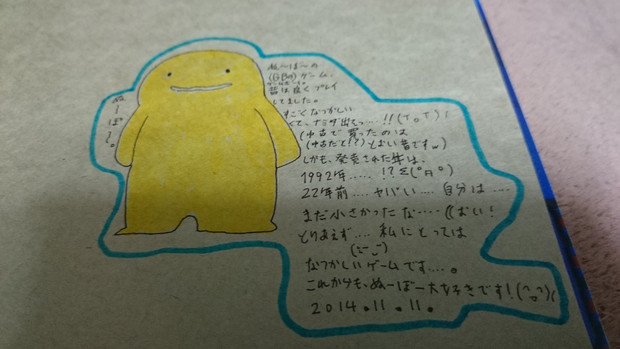 ぬ～ぼ～。
ぬ～ぼ～の
(GB)ゲーム、
昔は良くプレイ
してました。
すごくなつかしい
くて、ナミダ出そっ....!!(ToT)
(中古で買ったのは
(中古だと!?)とおい昔です
しかも、発売された年は、
1992年.....!?Σ(°Д°)
22年前....ヤバい....自分は....
まだ小さかったな....(おい!
とりあえず....私にとっては
なつかしいゲームです....。
これからも、ぬーぼー大好きです!
2014.11.11.